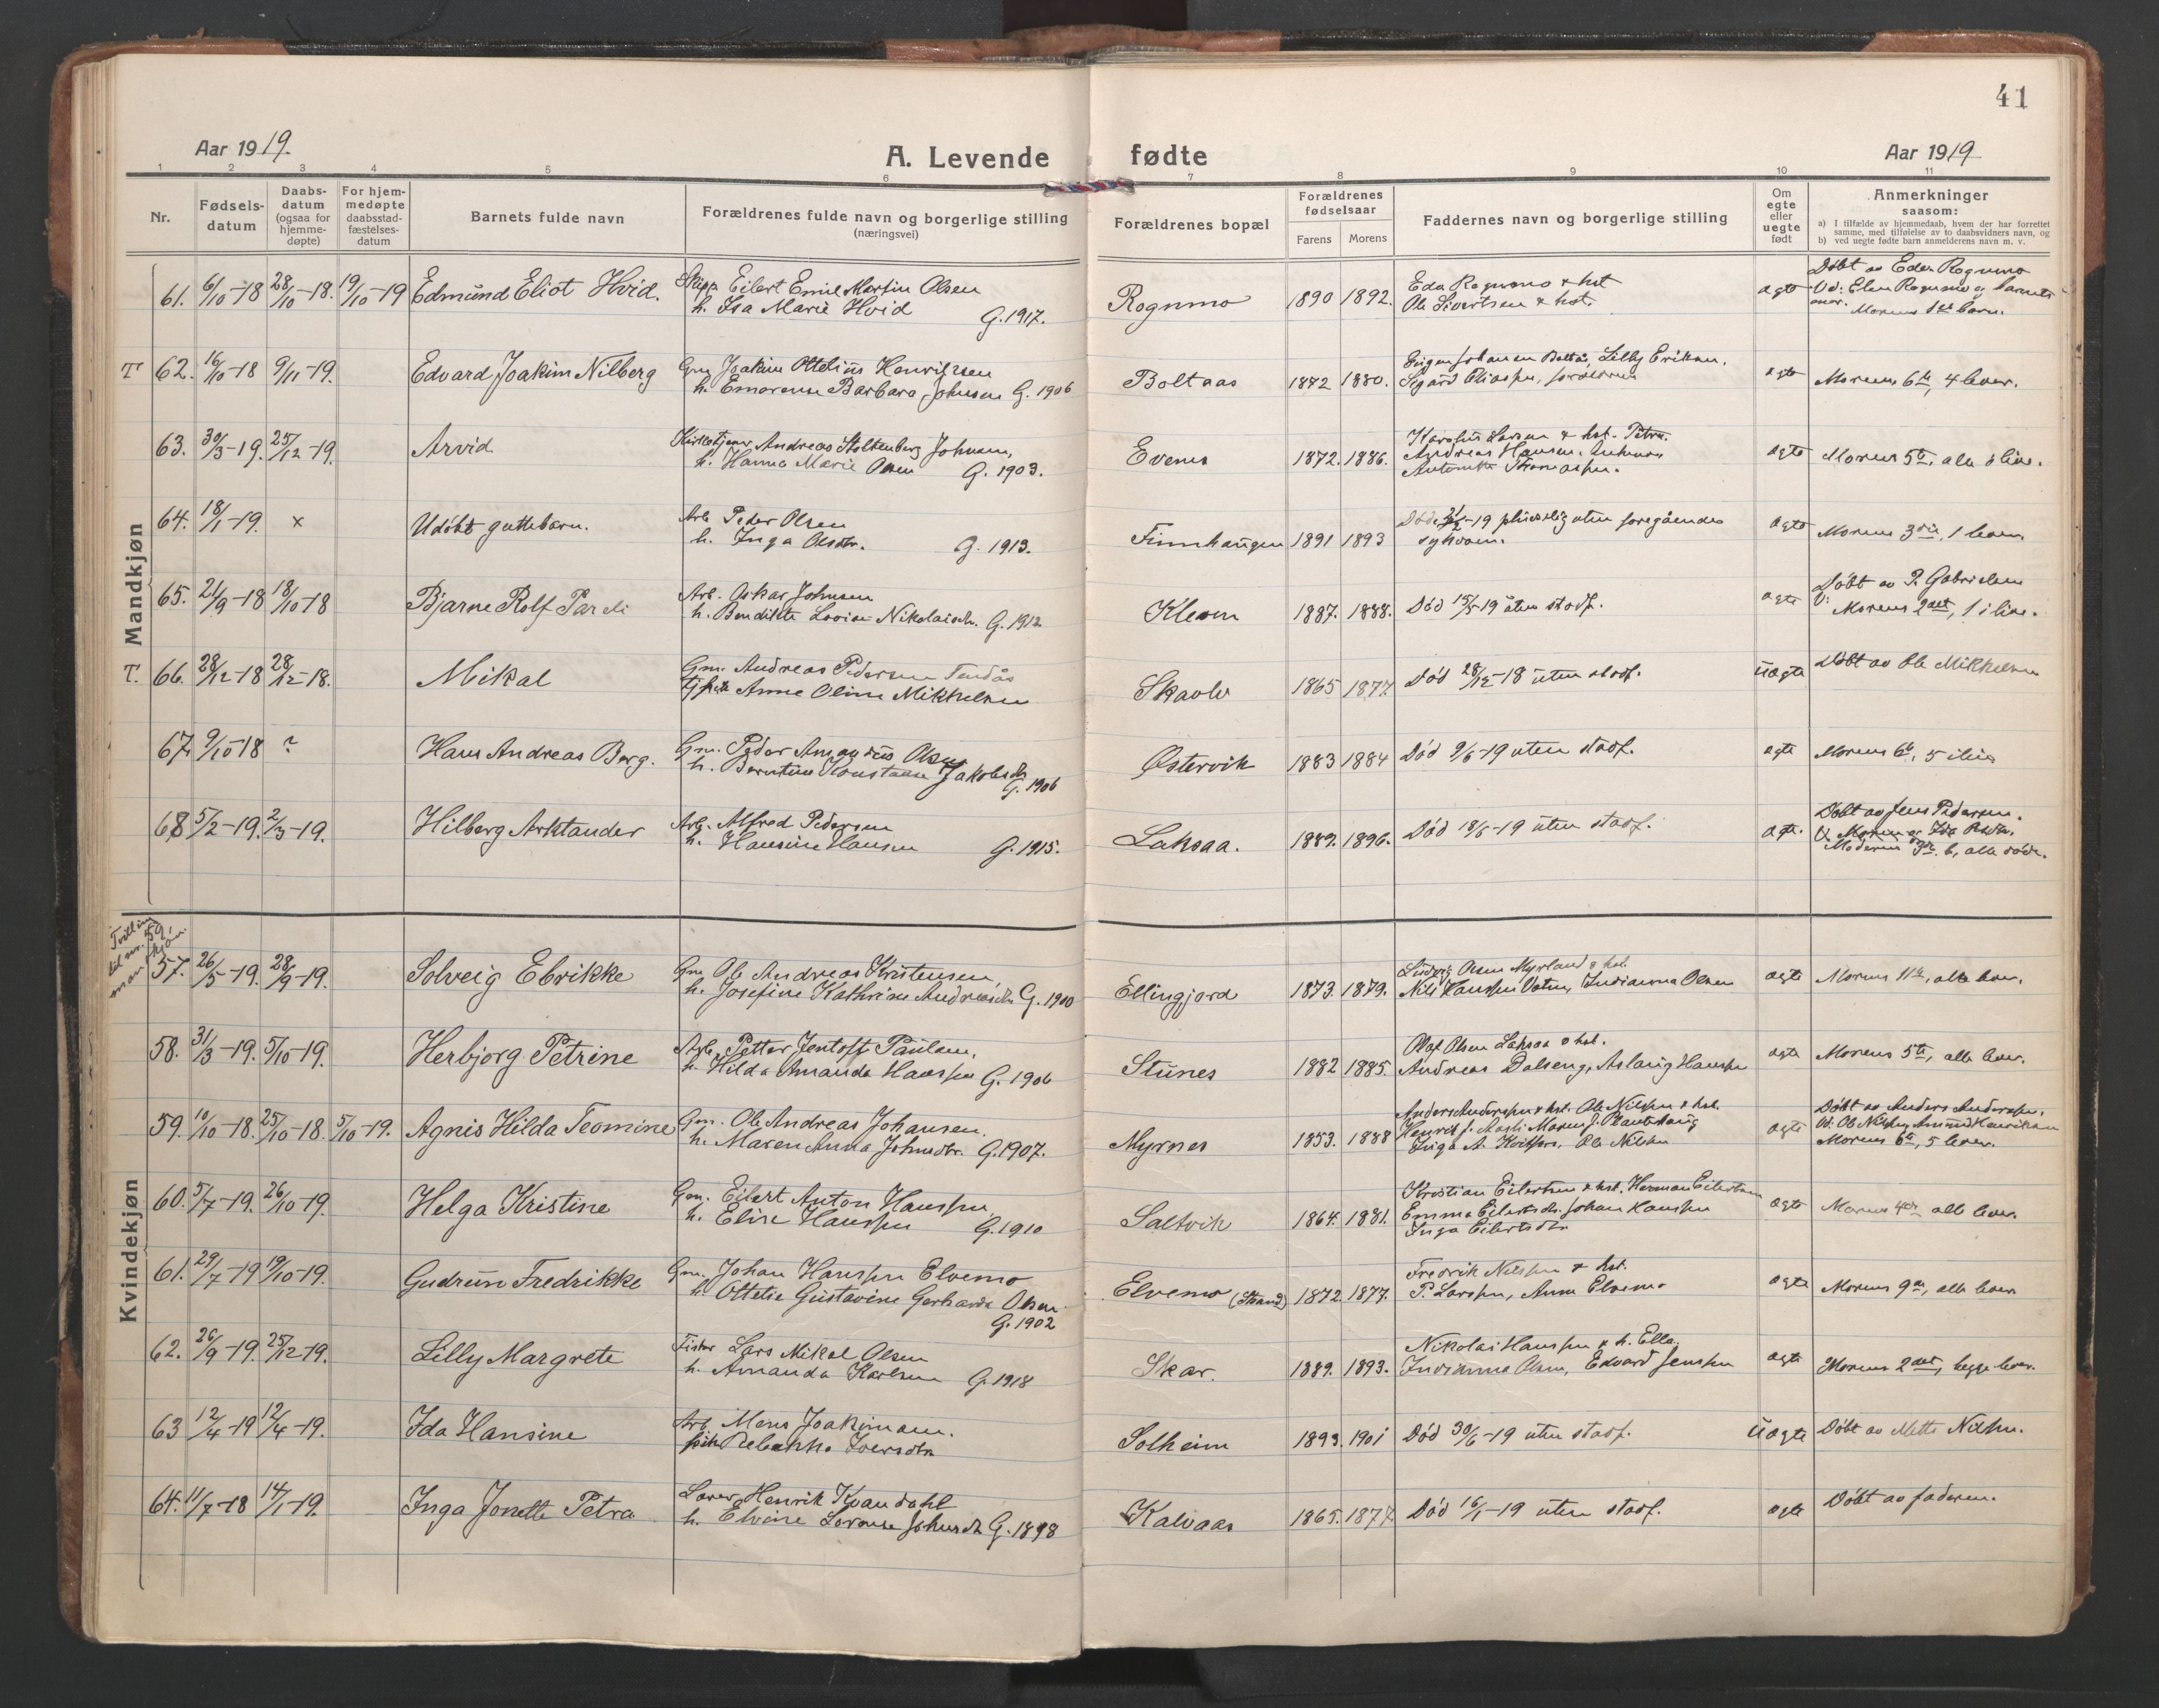 41
Aar 1919.
A. Levende fødte
Aar 1919
1 2 3 4 5 6 7 8 9 10 11
Nr.
Fødsels-
datum
Daabs-
datum
(ogsaa for
hjemme-
døpte)
For hjem-
medøpte
daabsstad-
fæstelses-
datum
Barnets fulde navn
Forældrenes fulde navn og borgerlige stilling
(næringsvei)
Forældrenes bopæl
Forældrenes
fødselsaar
Farens Morens
Faddernes navn og borgerlige stilling
Om
egte
eller
uegte
født
Anmerkninger
saasom:
a) I tilfælde av hjemmedaab, hvem der har forrettet
samme, med tilføielse av to daabsvidners navn, og
b) ved uegte fødte barn anmelderens navn m. v.
Mandkjøn
61. 6/10-18 28/10-18. 19/10-19 Edmund Eliot Hvid.
Eilert Emil Martin Olsen
h. Isa Marie Hvid G. 1917.
Rognmo 1890 1892.
Eda Rognmo & hst
Ole Sivertsen & hst.
egte
Døbt av Eda Rognmo
Vd: Elen Rognmo og barnets
mor. Morens 1ste barn.
T 62. 16/10-18 9/11-19. Edvard Joakim Nilberg
Gm Joakim Ottelius Henriksen
h. Emorense Barbara Johnsen G. 1906
Boltaas 1872 1880.
Johansen Boltås, Lilly Eriksen.
Sigård Eliassen, forældrene
egte
Morens 6te, 4 lever.
63. 30/3-19. 25/12-19. Arvid
Kirketjener Andreas Stoltenberg Johnsen,
h. Hanna Marie Olsen G. 1903.
Evenes 1872. 1886.
Larsen & hst. Petra.
Andreas Hansen,
Antonette Thomassen.
egte
Morens 5te, alle i live.
64. 18/1-19. x Udøbt guttebarn.
Arb Peder Olsen
h. Inga Olsdtr. G. 1913.
Finnhaugen 1891 1893
-19 pludselig uten foregående
sykdom.
egte
Morens 3die, 1 lever
65. 21/9-18 18/10-18 Bjarne Rolf Pareli
Arb. Oskar Johnsen
h. Bendikte Lovise Nikolaisdtr. G. 1912
Kleven 1887. 1888.
Død 15/5-19 uten stadf.
egte
Døbt av P. Gabrielsen
V:
Morens 2det, 1 i live.
T. 66. 28/12-18 28/12-18. Mikal
Gm. Andreas Pedersen Tendås
Anne Oline Mikkelsen
Skavlv 1865 1877.
Død 28/12-18 uten stadf.
uegte
Døbt av Ole Mikkelsen
67. 9/10-18 ? Hans Andreas Berg.
Gm. Peder Amandus Olsen
h. Berntine Konstanse Jakobsdtr
G. 1906
Østervik 1883 1884
Død 9/6-19 uten stadf.
egte
Morens 6te, 5 i live
68 5/2-19. 2/3-19. Hilberg Arktander
Arb. Alfred Pedersen
h. Hansine Hansen G. 1915.
Laksaa. 1889. 1896.
Død 18/6-19 uten stadf.
egte.
Døbt av Jens Pedersen.
V. Moren og Ida Peder.
Moderens 3die b, alle døde.
Kvindekjøn
Tvilling
til nr. 59,
mandkjøn.
57. 26/5-19. 28/9-19. Solveig Ebrikke
Gm Ole Andreas Kristensen,
h. Josefine Kathrine Andreasdtr G. 1900
Ellingjord 1873. 1879.
Ludvig Olsen Myrland & hst.
Nils Hanssen Votne, Indianna Olsen
egte
Morens 11te, alle lever.
58. 31/3-19. 5/10-19. Herbjorg Petrine
Arb. Petter Jentoft Paulsen,
h. Hilda Amanda Hanssen G. 1906
Stunes 1882 1885.
Olaf Olsen Laksaa & hst.
Andreas Dalseng, Aslaug Hanssen
egte
Morens 5te, alle lever.
59. 10/10-18. 25/10-18. 5/10-19. Agnis Hilda Teomine
Gm. Ole Andreas Johansen.
h. Maren Anna Johnsdtr. G. 1907.
Myrnes 1853. 1888
Anders Anderssen & hst. Ole Nilssen & hst.
Inga A. Ole Nilssen
egte
Døbt av Anders Anderssen.
Vd: Ole Nilssen, Henriksen
Morens 6te, 5 lever.
60. 5/7-19. 26/10-19. Helga Kristine
Gm. Eilert Anton Hanssen,
h. Elise Hanssen G. 1910
Saltvik 1864. 1881.
Kristian Eilertsen & hst. Herman Eilertsen
Emma Eilertsdtr. Johan Hanssen
Inga Eilertsdtr
egte
Morens 4de alle lever.
61. 29/7-19 19/10-19. Gudrun Fredrikke
Gm. Johan Hanssen Elvemo
h. Ottelie Gustavine Gerharda Olsen.
G. 1902
Elvemo (Strand) 1872. 1877.
Fredrik Nilssen & hst.
P. Larssen, Anna Elvemo
egte
Morens 9de, alle lever
62. 26/9-19. 25/12-19. Lilly Margrete
Fisker Lars Mikal Olsen
h. Amanda Karlsen G. 1918
Skar. 1889. 1893.
Nikolai Hanssen & h. Ella.
Indianna Olsen, Edvard Jenssen
egte
Morens 2det, begge lever.
63 12/4-19 12/4-19. Ida Hansine
Arb Mons Joakimsen.
Rebekka Iversdtr
Solheim 1893. 1901
Død 30/6-19 uten stadf.
uegte
Døbt av Mette Nilssen.
64. 11/7-18 14/1-19. Inga Jonette Petra
Lærer Henrik Kvandahl
h. Elvine Lorense Johnsdtr G. 1898
Kalvaas 1865. 1877.
Død 16/1-19 uten stadf.
egte
Døbt av faderen.